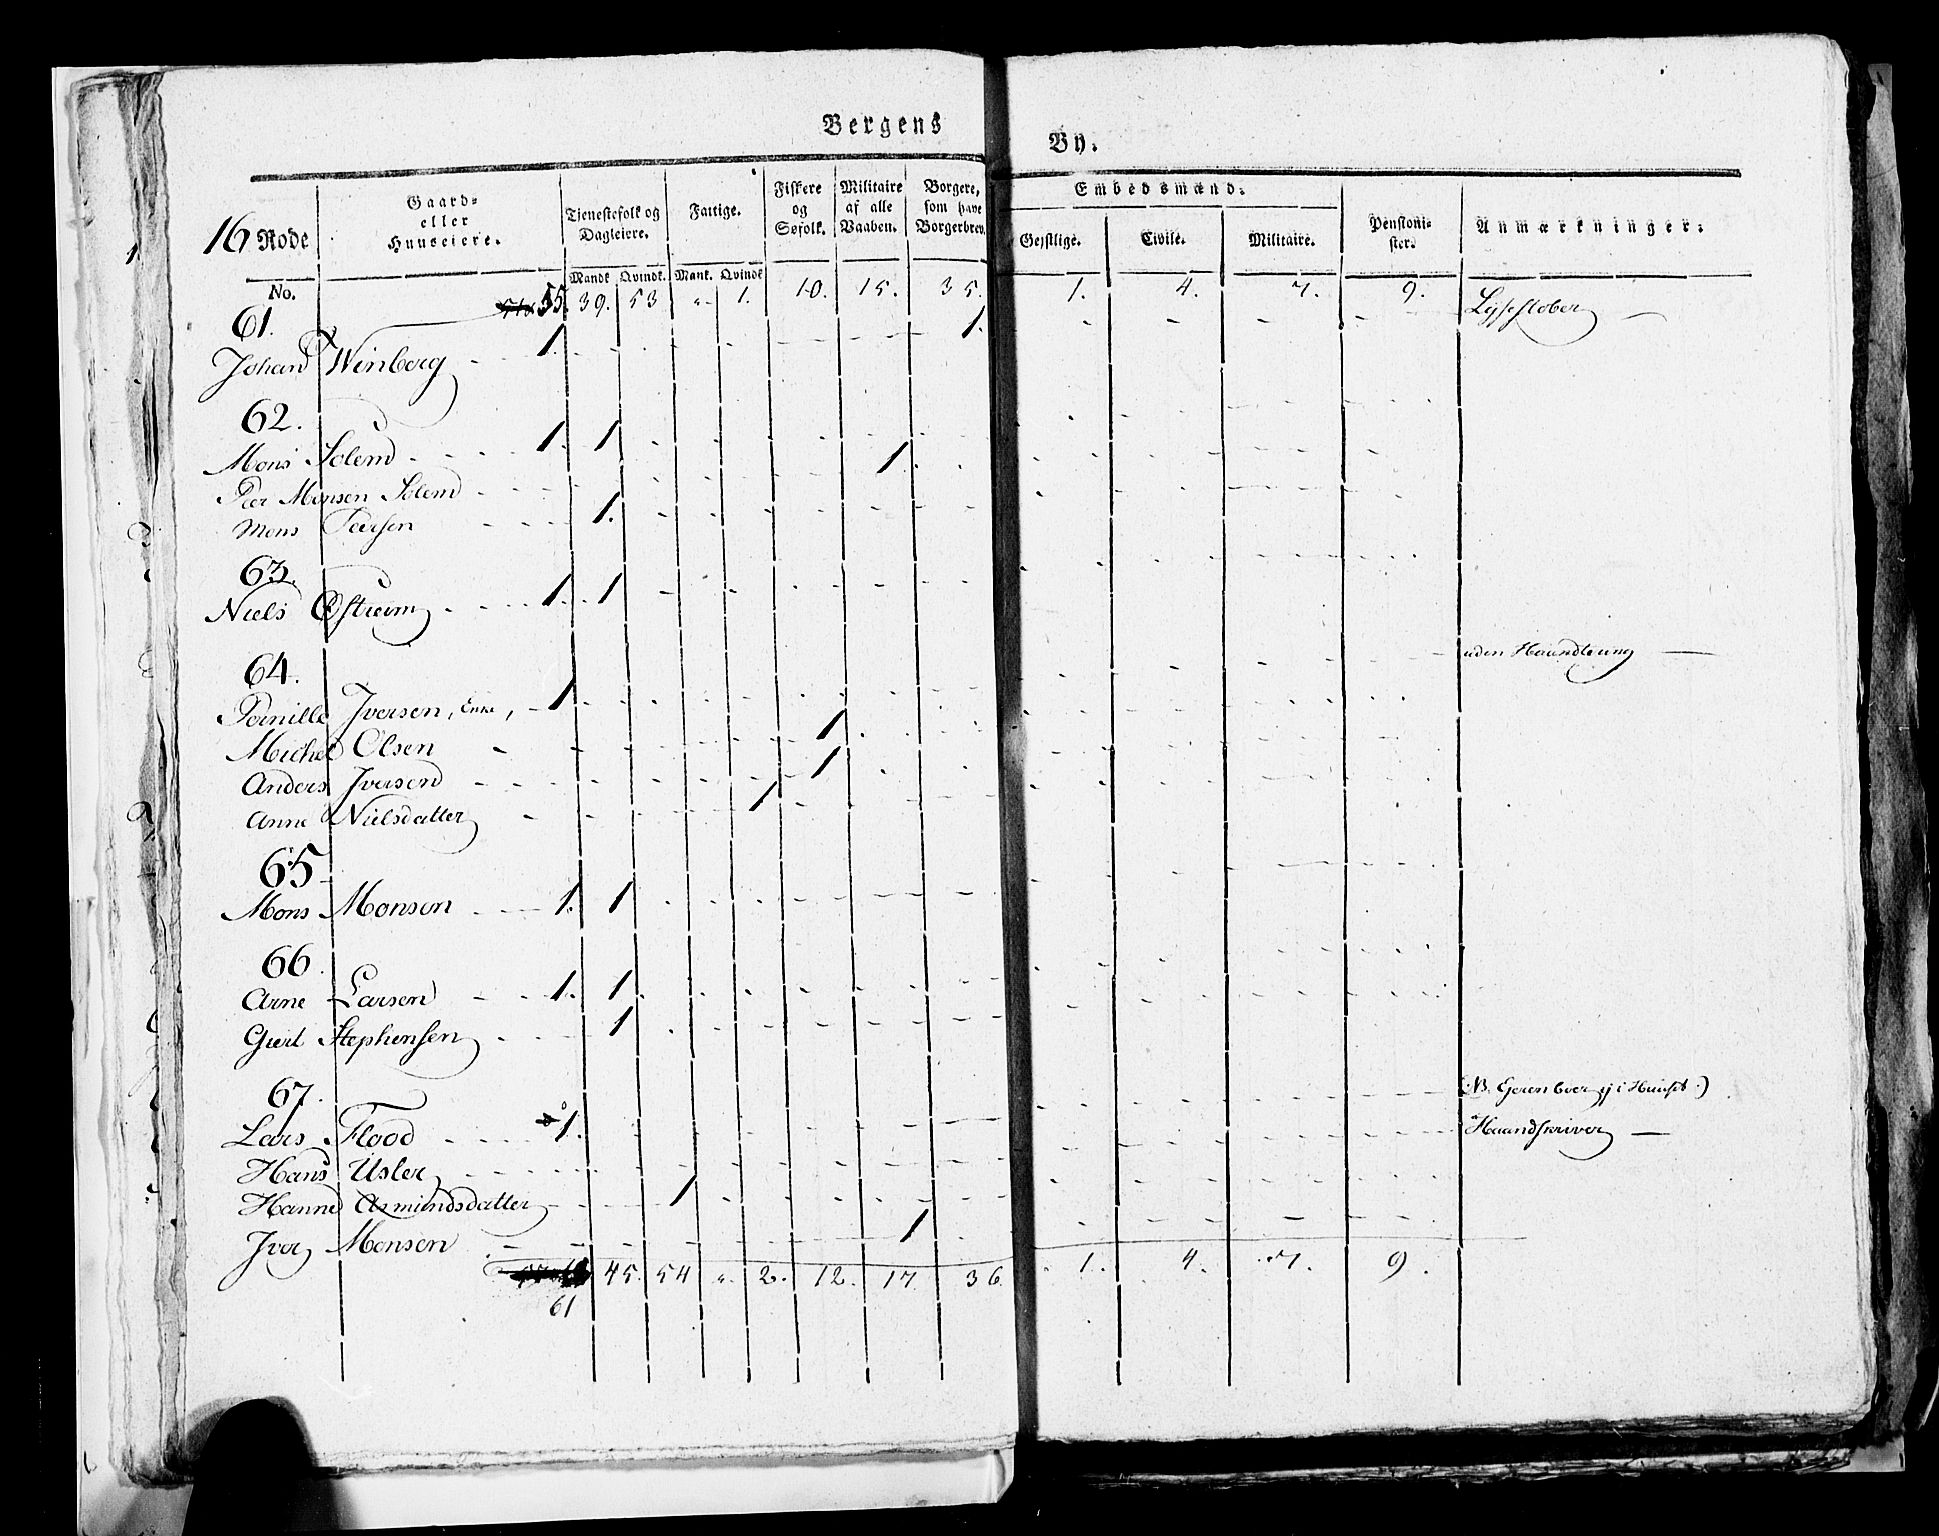 Bergens By.
16 Rode
No.
Gaard-
eller
Huuseiere.
Tjenestefolk og
Dagleiere.
Mandk. Qvindk.
Fattige.
Mank. Qvindk
Fiskere
og
Søfolk.
Militaire
af alle
Vaaben.
Borgere,
som have
Borgerbrev.
Embedsmænd.
Geistlige. Civile. Militaire.
Pensioni-
ster.
Anmærkninger.
55. 39. 53 „ 1. 10. 15. 35. 1. 4. 7. 9.
61.
Johan Winberg 1. 1. Lysestøber
62.
Mons Solem 1. 1
Peer Monsen Solem 1
Mons Peersen 1.
63.
Niels Østreim 1 1
64.
Pernille Iversen, Enke, 1 uden Haandtering
Michel Olsen 1
Anders Iversen 1
Anne Nielsdatter 1
65
Mons Monsen 1. 1
66.
Arne Larsen 1. 1
Giert Stephensen 1
67.
Lars Flood 1. (NB. Ejeren boer ej i Huuset.)
Hans Usler Haandskriver
Hanne Asmundsdatter 1
Iver Monsen 1
45. 54 „ 2. 12. 17 36. 1. 4. 7. 9.
61